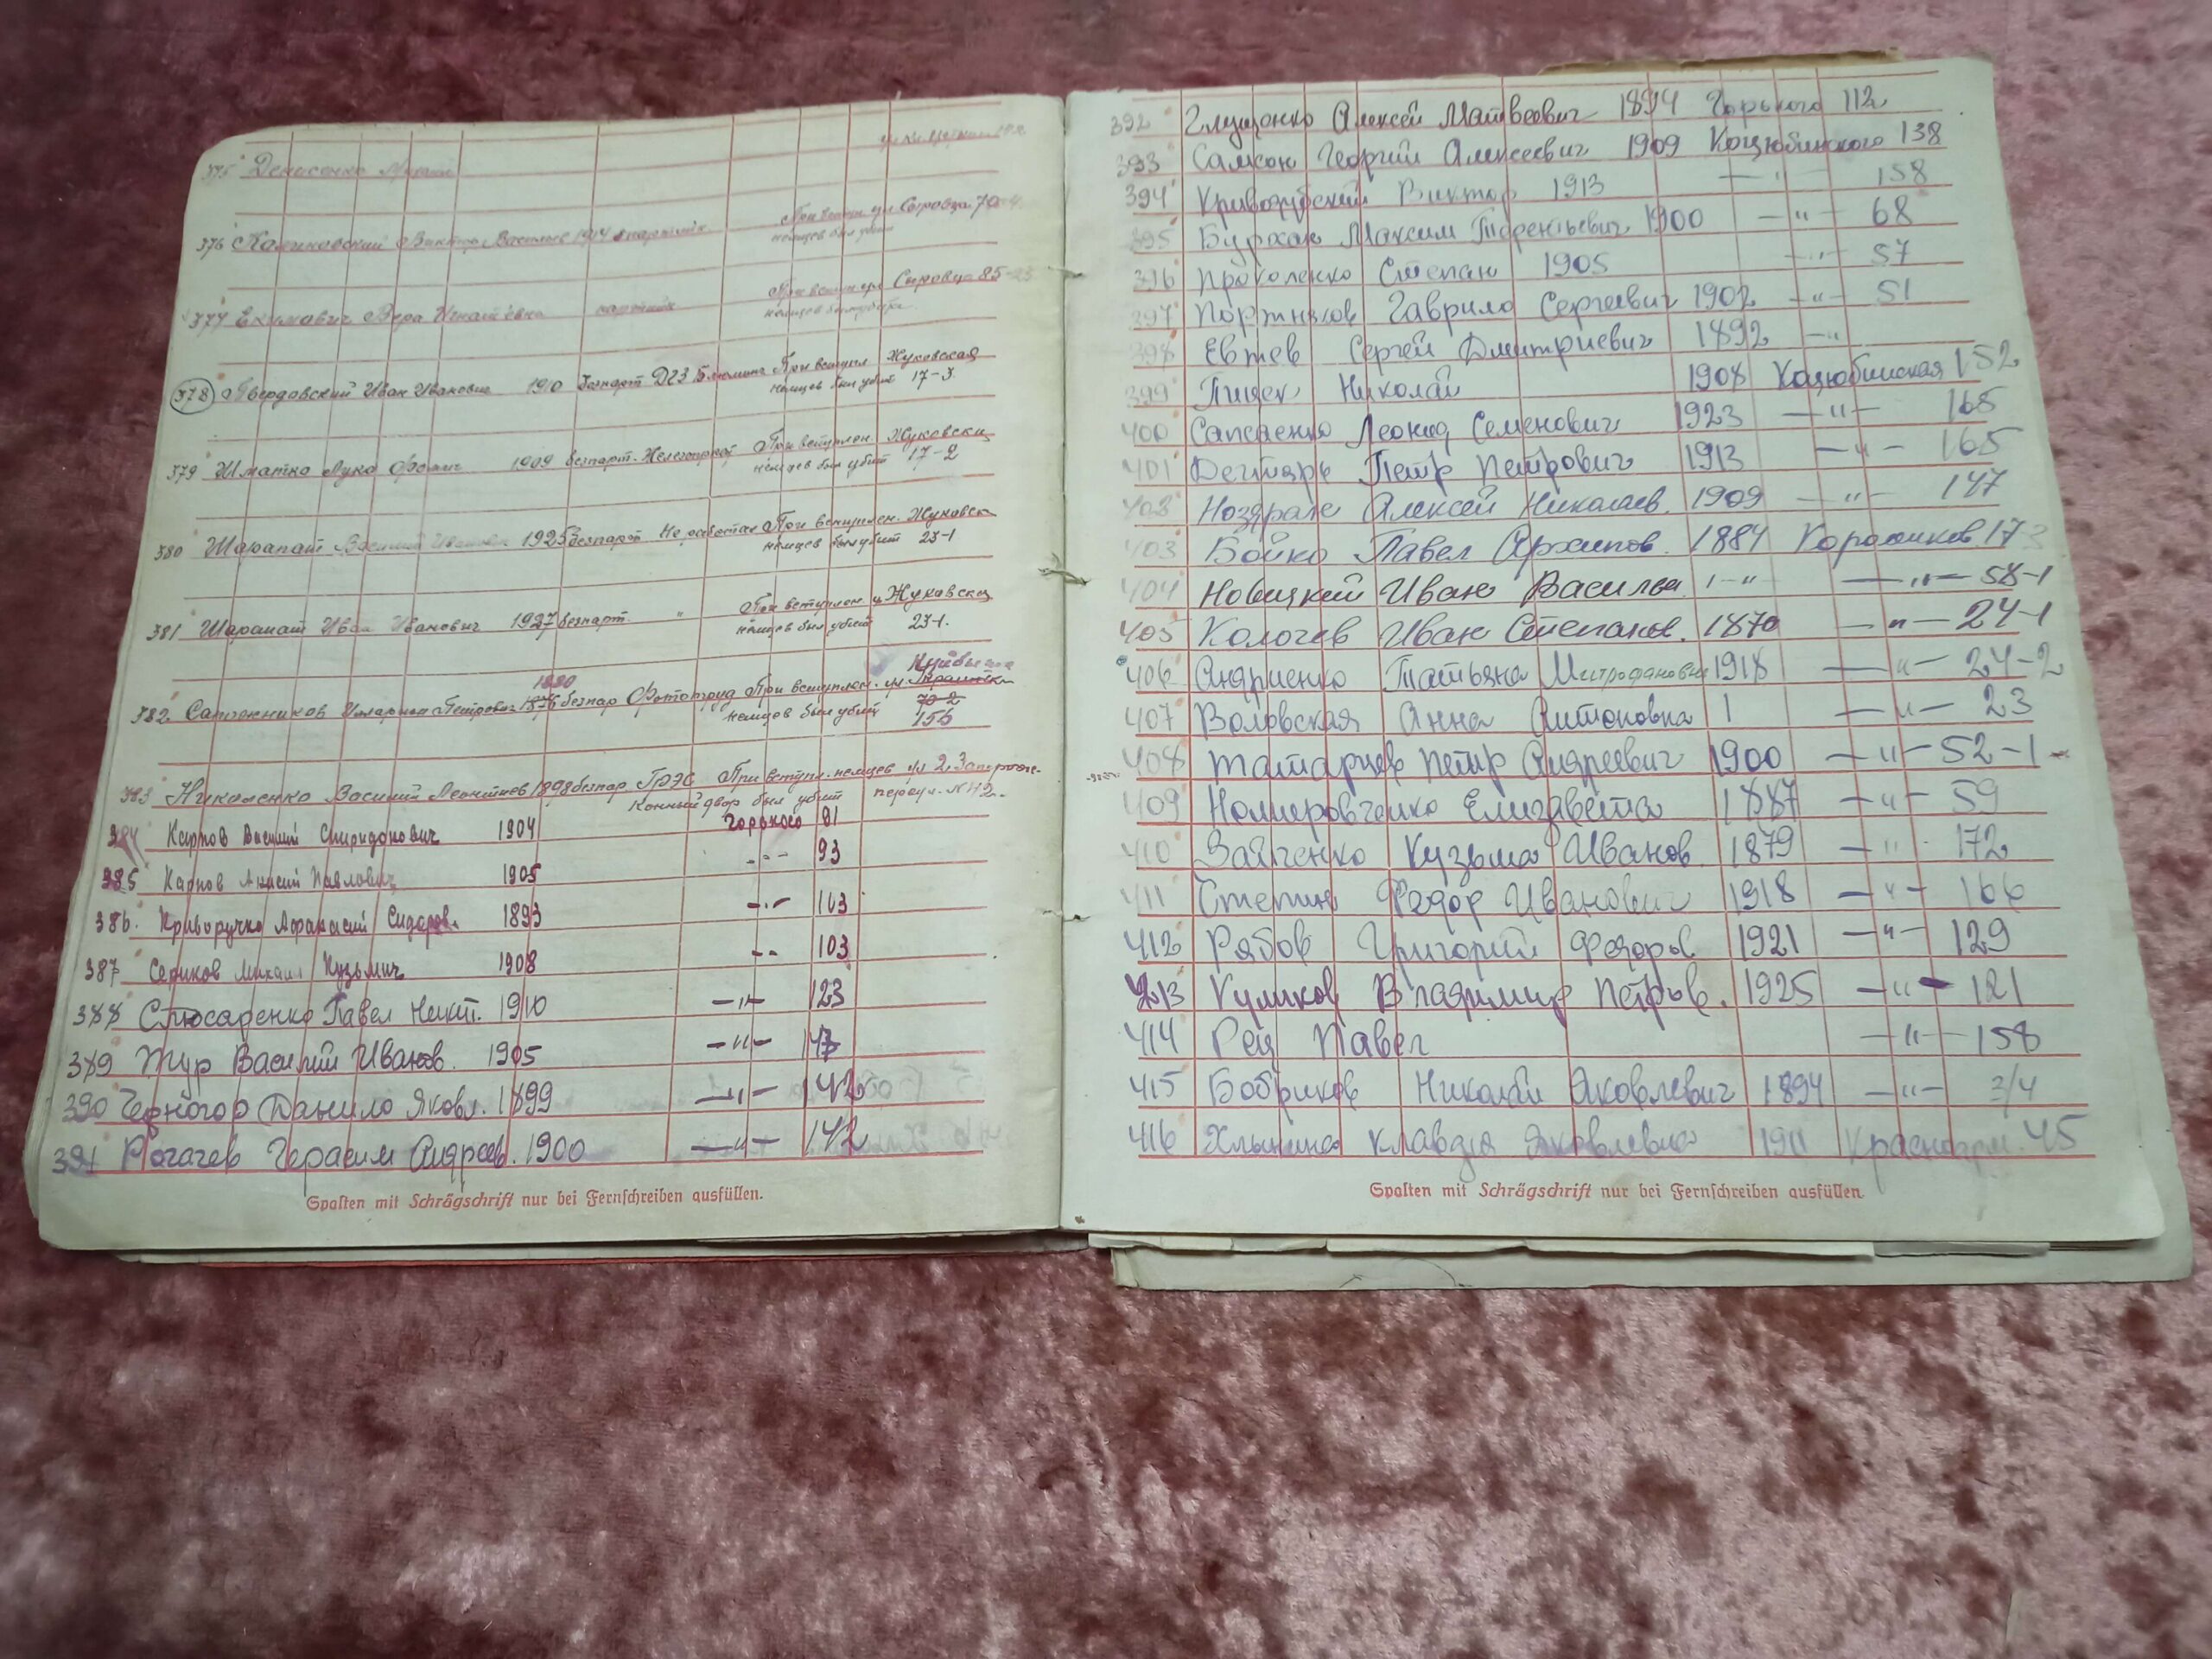 375 Денисенко
376 Калиновский Виктор 1914
немцев был убит
ул Сыровца 70
377 Екимович Вера Игнатьевна
Сыровца 85
378 Твердовский Иван Иванович 190 безпарт. При вступл. Жуковская
немцев был убит 17-3
379 Шматко Лука 1909 безпарт. При вступлен. Жуковски
немцев был убит 17-2
380 Шарапат 1925 безпарт Не работал При вступлен. Жуковск
немцев был убит 23-1
381 Шарапат Иван Иванович 1927 безпарт. " При вступлен. ул Жуковски
немцев был убит 23-1.
1880
382 Сапожников Илларион Петрович безпар При вступлен. ул
немцев был убит 70-2
156
383 Николенко Василий Леонтиев 1898 безпар. ГРЭС При вступл. немцев ул 2
Конный двор был убит переул. №42.
384 Карпов Василий Спиридонович 1904 Горького 81
385 Карпов Павлович 1905 -"- 93
386. Криворучко Афанасий Сидоров. 1893 -"- 103
387 Сериков Михаил Кузьмич 1908 -"- 103
388 Слюсаренко Павел Никит. 1910 -"- 123
389 Жур Василий Иванов. 1905 -"-
390 Черногор Данило Яковл. 1899 -"- 142
391 Рогачев Герасим Андреев. 1900 -"- 142
Spalten mit Schrägschrift nur bei Fernschreiben ausfüllen.
392 Глущенко Алексей Матвеевич 1894 Горького 112
393 Самсон Георгий Алексеевич 1909 Коцюбинского 138
394 Виктор 1913 -"- 158
395 Бурхан Максим Терентьевич 1900 -"- 68
396 Проколенко Степан 1905 -"- 57
397 Портняков Гаврило Сергеевич 1902 -"- 51
398 Евтев Сергей Дмитриевич 1892 -"-
399 Николай 1908 Коцюбинская 152
400 Леонид Семенович 1923 -"- 165
401 Дегтярь Петр Петрович 1913 -"- 165
Алексей Николаев. 1909 -"- 147
403 Бойко Павел Архипов. 1884 Короленков. 173
404 Новицкий Иван Васильев -"- 58-1
405 Колочев Иван Степанов. 1870 -"- 24-1
406 Андриенко Татьяна Митрофановна 1918 -"- 24-2
407 Воловская Анна Антоновна 1 -"- 23
408 Татарцев Петр Андреевич 1900 -"- 52-1
409 Номеровченко Елизавета 1887 -"- 59
410 Зайченко Кузьма Иванов. 1879 -"- 172
411 Степин Федор Иванович 1918 -"- 166
412 Рябов Григорий Федоров 1921 -"- 129
413 Куликов Владимир Петров. 1925 -"- 121
414 Рец Павел -"- 158
415 Бобриков Николай Яковлевич 1894 -"- 2/4
416 Клавдия Яковлевна 1911 Красноарм. 45
Spalten mit Schrägschrift nur bei Fernschreiben ausfüllen.